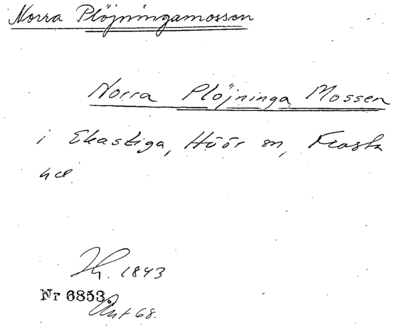 Norra Plöjningamosson
Norra Plöjninga Mossen
i Ekastiga, Höör sn, Frosta
hd
Th. 1843
Nr 6853.
Ant 68.